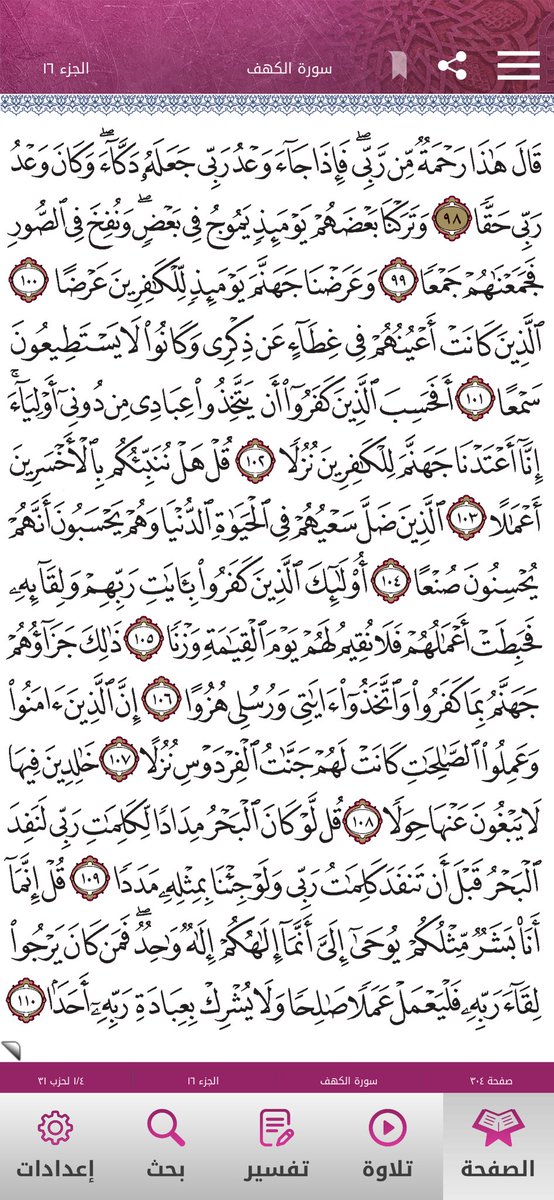 سورة الكهف
الجزء ١٦
قَالَ هَٰذَا رَحْمَةٌ مِّن رَّبِّي ۖ فَإِذَا جَآءَ وَعْدُ رَبِّي جَعَلَهُۥ دَكَّآءَ ۖ وَكَانَ وَعْدُ
رَبِّي حَقًّا ٩٨ وَتَرَكْنَا بَعْضَهُمْ يَوْمَئِذٍ يَمُوجُ فِي بَعْضٍ ۖ وَنُفِخَ فِي ٱلصُّورِ
فَجَمَعْنَٰهُمْ جَمْعًا ٩٩ وَعَرَضْنَا جَهَنَّمَ يَوْمَئِذٍ لِّلْكَٰفِرِينَ عَرْضًا ١٠٠
ٱلَّذِينَ كَانَتْ أَعْيُنُهُمْ فِي غِطَآءٍ عَن ذِكْرِي وَكَانُوا۟ لَا يَسْتَطِيعُونَ
سَمْعًا ١٠١ أَفَحَسِبَ ٱلَّذِينَ كَفَرُوٓا۟ أَن يَتَّخِذُوا۟ عِبَادِي مِن دُونِيٓ أَوْلِيَآءَ ۚ
إِنَّآ أَعْتَدْنَا جَهَنَّمَ لِلْكَٰفِرِينَ نُزُلًا ١٠٢ قُلْ هَلْ نُنَبِّئُكُم بِٱلْأَخْسَرِينَ
أَعْمَٰلًا ١٠٣ ٱلَّذِينَ ضَلَّ سَعْيُهُمْ فِي ٱلْحَيَوٰةِ ٱلدُّنْيَا وَهُمْ يَحْسَبُونَ أَنَّهُمْ
يُحْسِنُونَ صُنْعًا ١٠٤ أُو۟لَٰٓئِكَ ٱلَّذِينَ كَفَرُوا۟ بِـَٔايَٰتِ رَبِّهِمْ وَلِقَآئِهِۦ
فَحَبِطَتْ أَعْمَٰلُهُمْ فَلَا نُقِيمُ لَهُمْ يَوْمَ ٱلْقِيَٰمَةِ وَزْنًا ١٠٥ ذَٰلِكَ جَزَآؤُهُمْ
جَهَنَّمُ بِمَا كَفَرُوا۟ وَٱتَّخَذُوٓا۟ ءَايَٰتِي وَرُسُلِي هُزُوًا ١٠٦ إِنَّ ٱلَّذِينَ ءَامَنُوا۟
وَعَمِلُوا۟ ٱلصَّٰلِحَٰتِ كَانَتْ لَهُمْ جَنَّٰتُ ٱلْفِرْدَوْسِ نُزُلًا ١٠٧ خَٰلِدِينَ فِيهَا
لَا يَبْغُونَ عَنْهَا حِوَلًا ١٠٨ قُل لَّوْ كَانَ ٱلْبَحْرُ مِدَادًا لِّكَلِمَٰتِ رَبِّي لَنَفِدَ
ٱلْبَحْرُ قَبْلَ أَن تَنفَدَ كَلِمَٰتُ رَبِّي وَلَوْ جِئْنَا بِمِثْلِهِۦ مَدَدًا ١٠٩ قُلْ إِنَّمَآ
أَنَا۠ بَشَرٌ مِّثْلُكُمْ يُوحَىٰٓ إِلَيَّ أَنَّمَآ إِلَٰهُكُمْ إِلَٰهٌ وَٰحِدٌ ۖ فَمَن كَانَ يَرْجُوا۟
لِقَآءَ رَبِّهِۦ فَلْيَعْمَلْ عَمَلًا صَٰلِحًا وَلَا يُشْرِكْ بِعِبَادَةِ رَبِّهِۦٓ أَحَدًۢا ١١٠
صفحة ٣٠٤ سورة الكهف الجزء ١٦ ١/٤ لحزب ٣١
الصفحة تلاوة تفسير بحث إعدادات